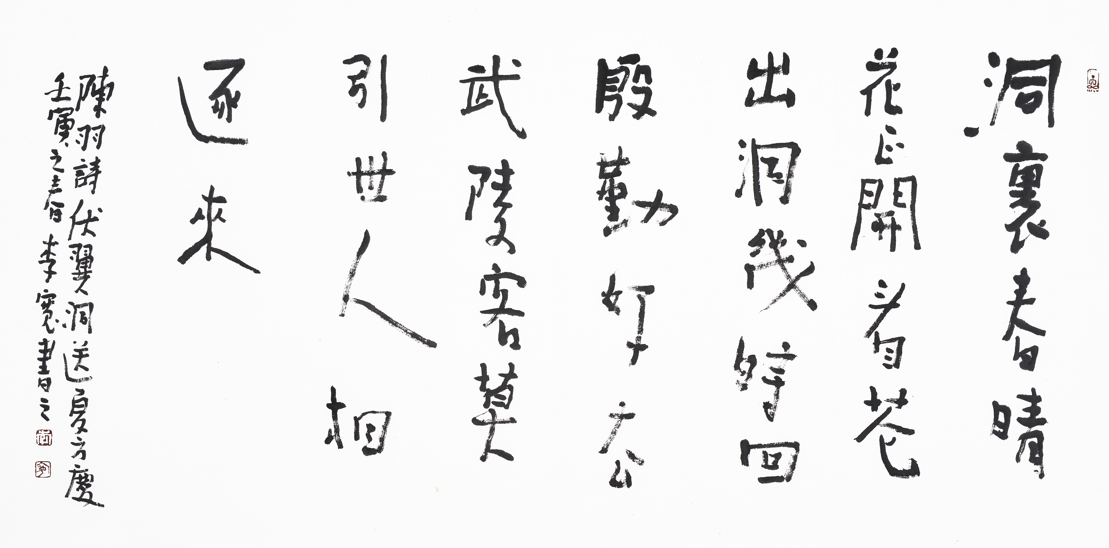 洞裏春晴
花正開看花
出洞幾時回
殷勤好去
武陵客莫
引世人相
逐來
陳羽詩伏翼洞送夏方慶
壬寅之春李書之